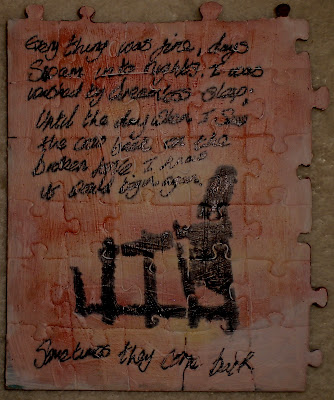 Every thing was fine, days
Swam into nights. I was
washed by dreamless sleep;
Until the day when I saw
the
broken I knew
it would begin again.
Sometimes they come back